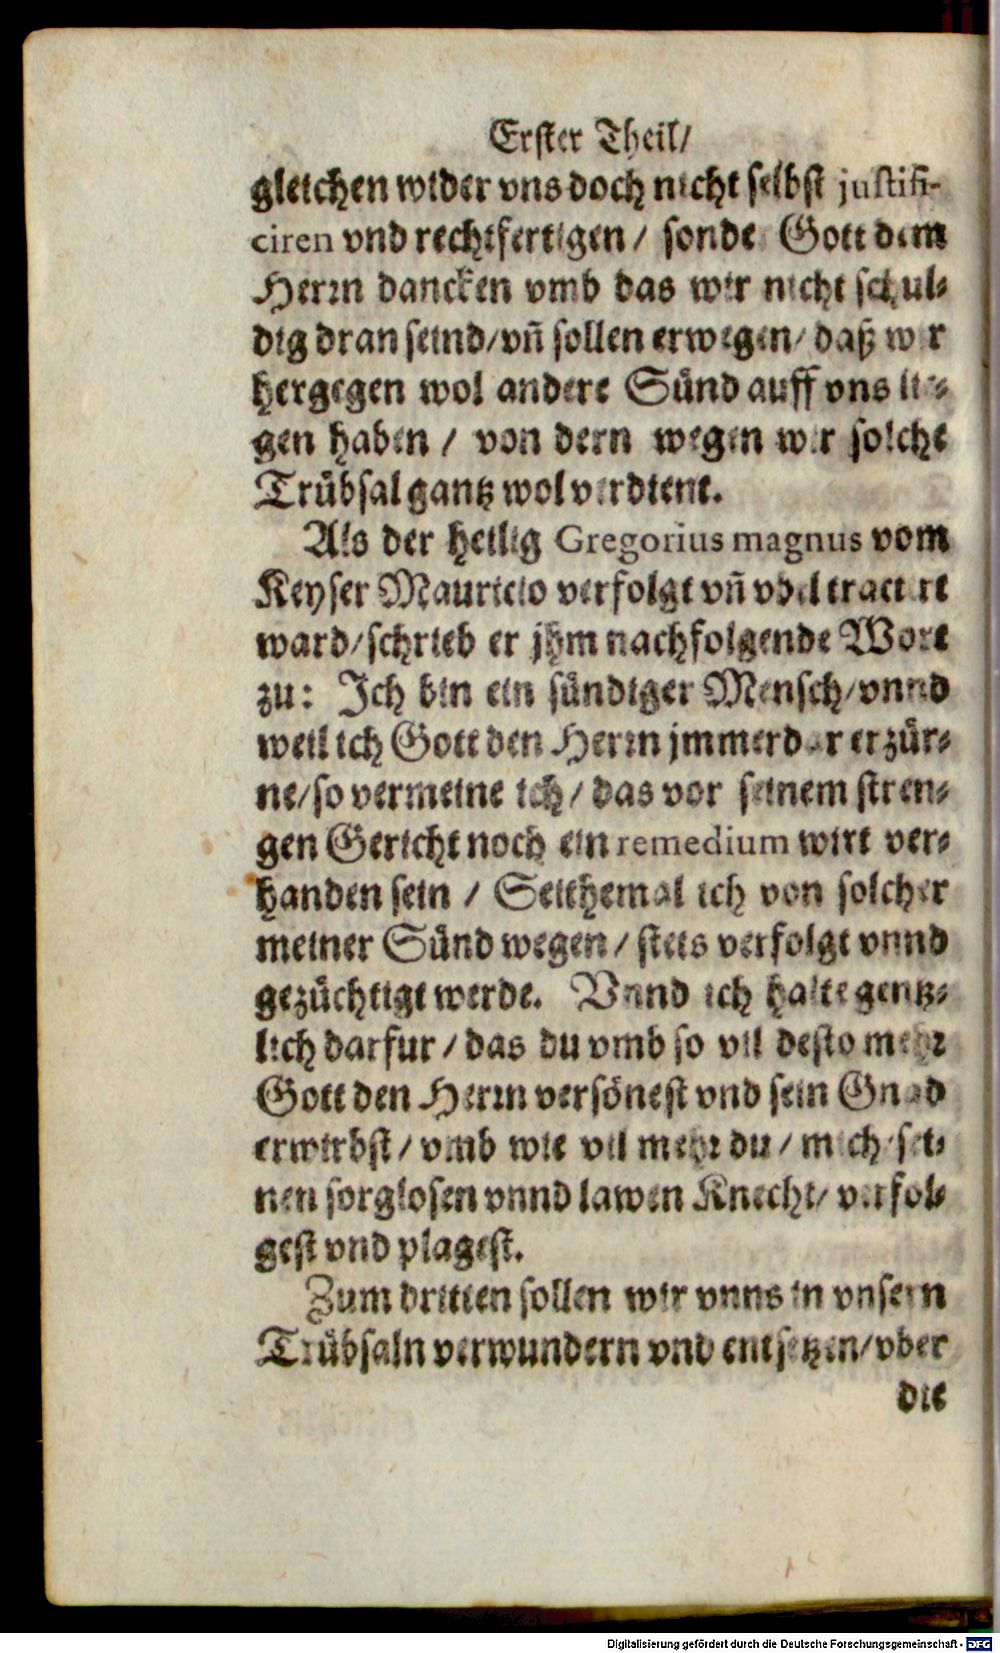 Erster Theil/
gleichen wider vns doch nicht selbst justifi-
ciren vnd rechtfertigen / sonde Gott dem
Herrn dancken vmb das wir nicht schul-
dig dran seind/vñ sollen erwegen/ daß wir
hergegen wol andere Sünd auff vns lie-
gen haben / von dern wegen wir solche
Trübsal gantz wol verdient.
Als der heilig Gregorius magnus vom
Keyser Mauricio verfolgt vñ vbel tractiret
ward/schrieb er jhm nachfolgende Wort
zu: Ich bin ein sündiger Mensch/vnnd
weil ich Gott den Herrn jmmerdar erzür-
ne/so vermeine ich/ das vor seinem stren-
gen Gericht noch ein remedium wirt ver-
handen sein / Seithemal ich von solcher
meiner Sünd wegen/ stets verfolgt vnnd
gezüchtigt werde. Vnnd ich halte gentz-
lich darfur / das du vmb so vil desto mehr
Gott den Herrn versönest vnd sein Gnad
erwirbst/ vmb wie vil mehr du/ mich sei-
nen sorglosen vnnd lawen Knecht/ verfol-
gest vnd plagest.
Zum dritten sollen wir vnns in vnsern
Trübsaln verwundern vnd entsetzen/vber
die
Digitalisierung gefördert durch die Deutsche Forschungsgemeinschaft - DFG